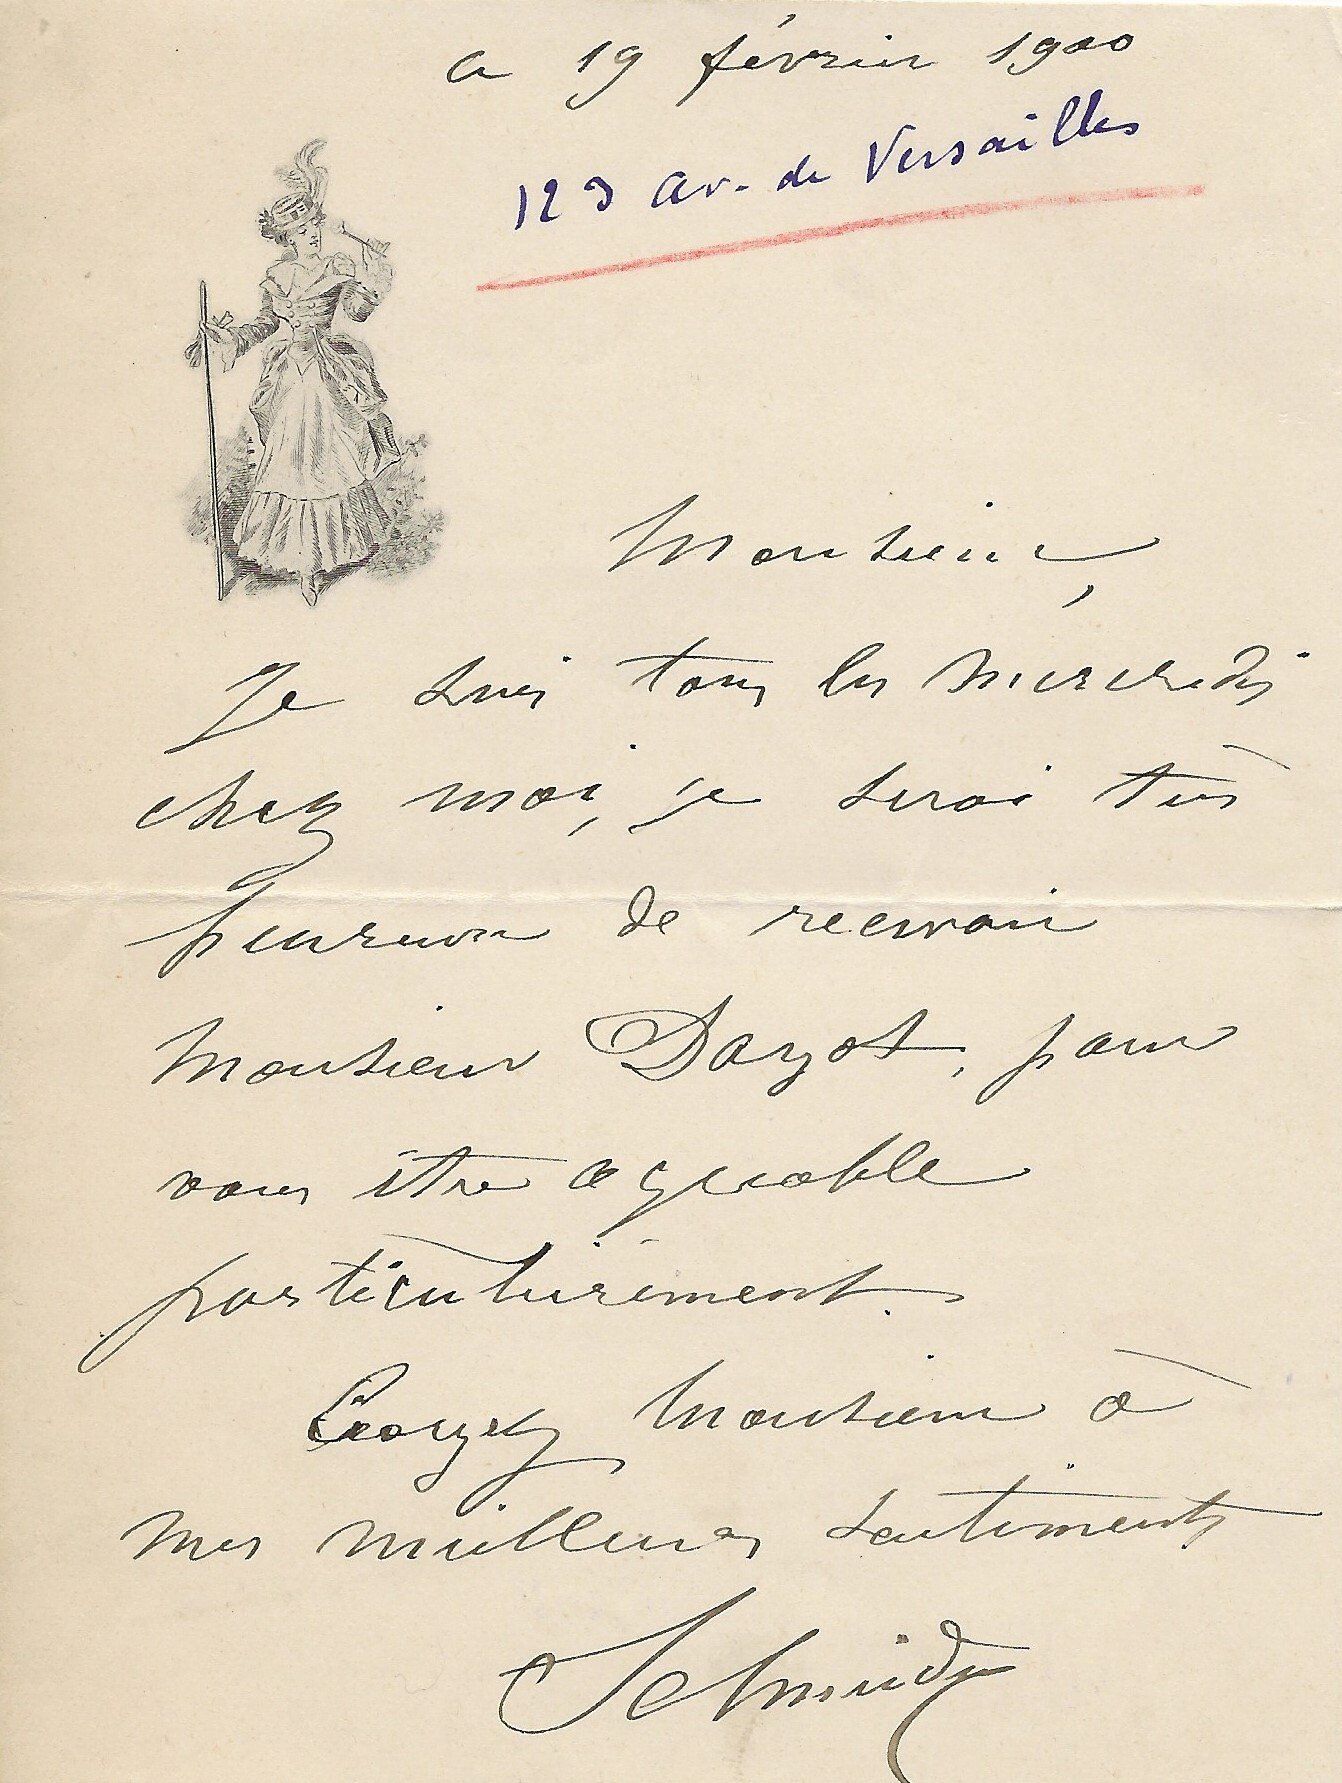 a 19 février 1900
123 av. de Versailles
Monsieur,
Je suis tous les mercredis
chez moi, je serai très
heureux de recevoir
Monsieur Dayot, pour
vous être agréable
particulièrement.
Croyez Monsieur à
mes meilleurs sentiments
Schmidt